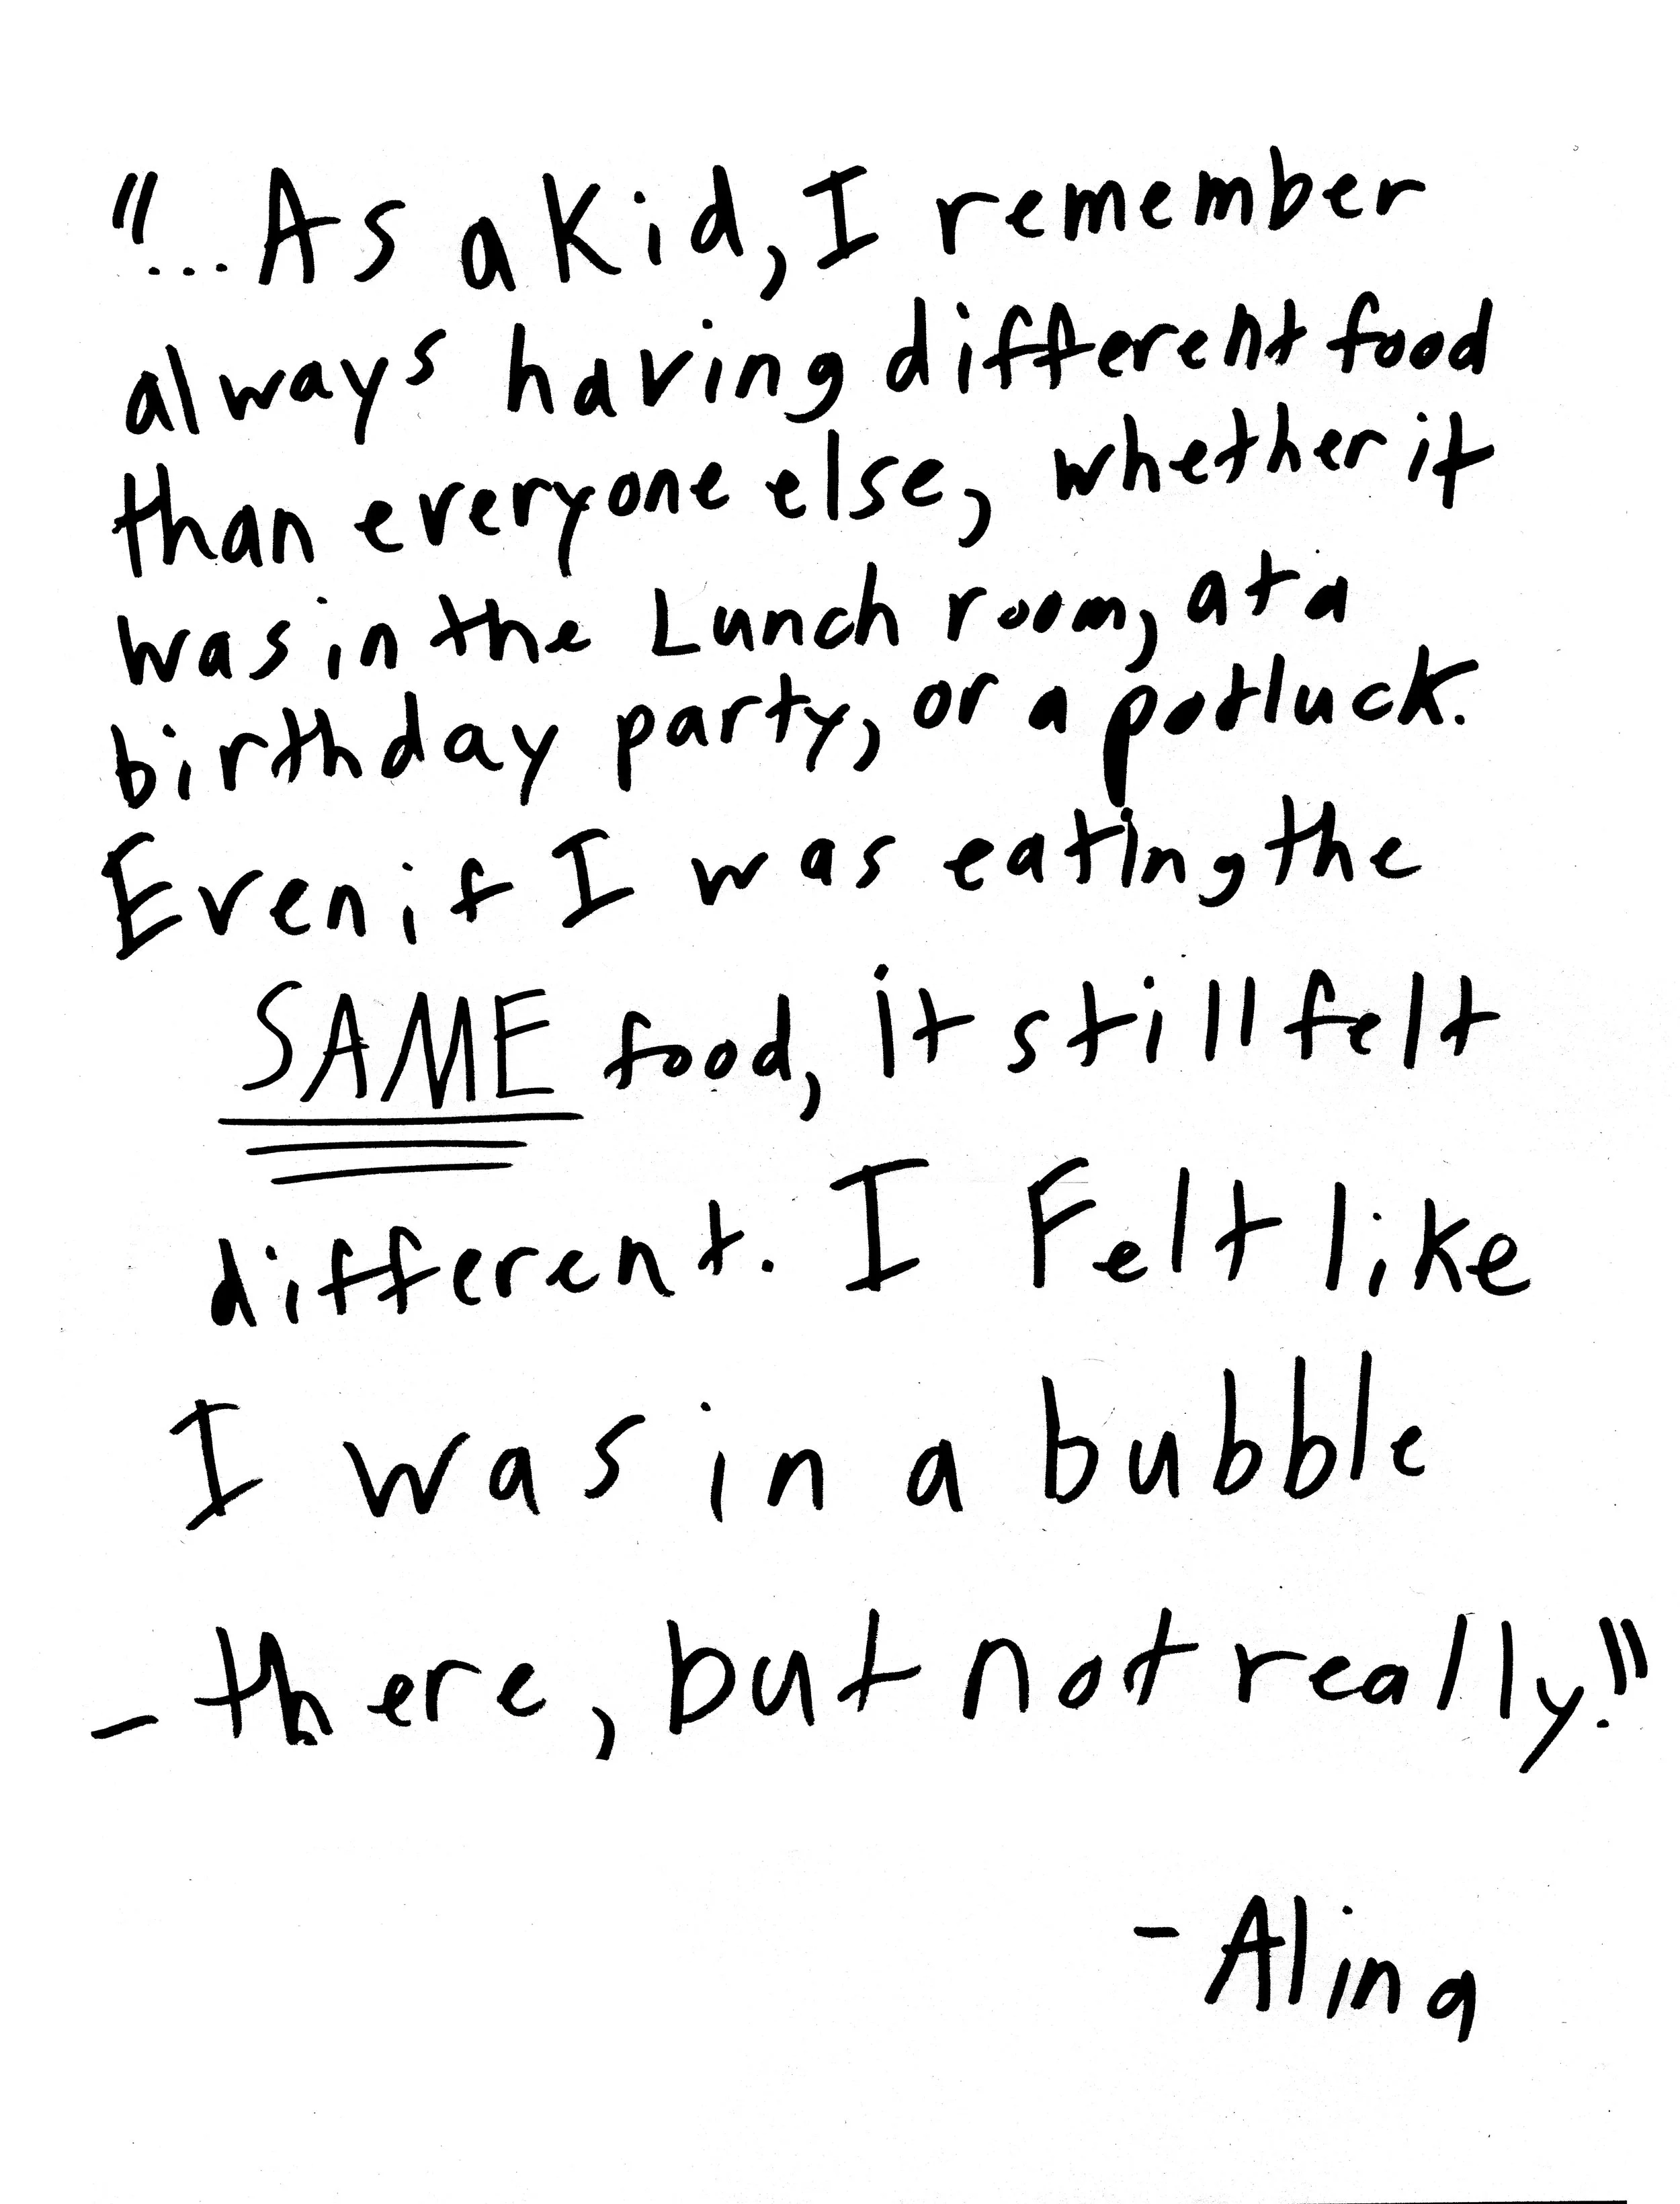 "...As a Kid, I remember
always having different food
than everyone else, whether it
was in the Lunch room, at a
birthday party, or a potluck.
Even if I was eating the
SAME food, it still felt
different. I Felt like
I was in a bubble
- there, but not really."
- Alina